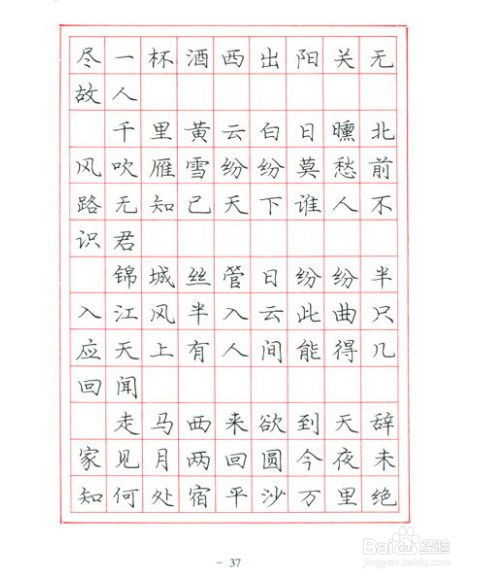 尽一杯酒西出阳关无
故人
千里黄云白日曛北
风吹雁雪纷纷莫愁前
路无知己天下谁人不
识君
锦城丝管日纷纷半
入江风半入云此曲只
应天上有人间能得几
回闻
走马西来欲到天辞
家见月两回圆今夜未
知何处宿平沙万里绝
- 37
Baidu经验
jingyan.baidu.com